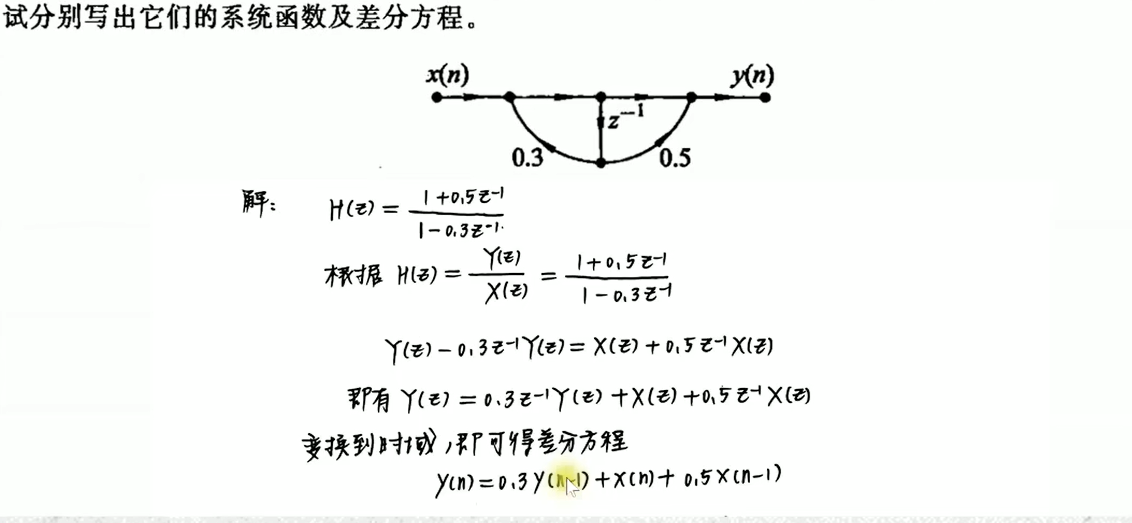 试分别写出它们的系统函数及差分方程。
x(n) y(n)
z⁻¹
0.3 0.5
解： H(z) = (1+0.5z⁻¹)/(1-0.3z⁻¹)
根据 H(z) = Y(z)/X(z) = (1+0.5z⁻¹)/(1-0.3z⁻¹)
Y(z)-0.3z⁻¹Y(z) = X(z)+0.5z⁻¹X(z)
即有 Y(z) = 0.3z⁻¹Y(z)+X(z)+0.5z⁻¹X(z)
变换到时域，即可得差分方程
y(n) = 0.3y(n-1)+x(n)+0.5x(n-1)